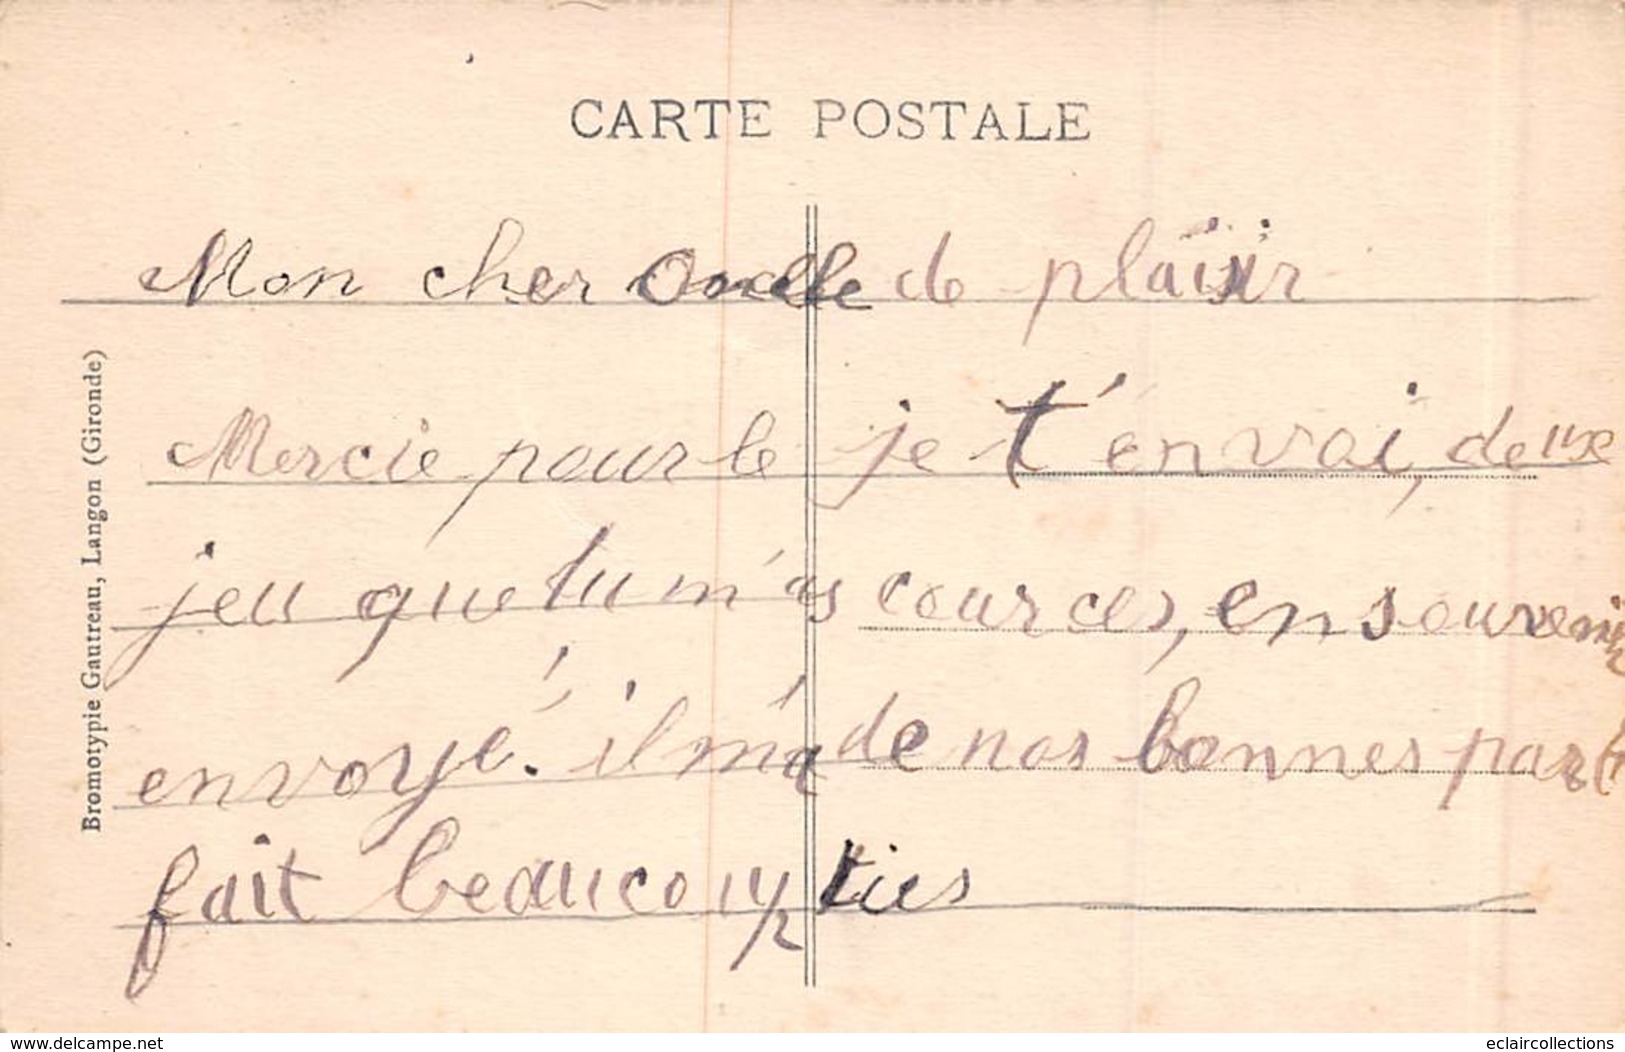 CARTE POSTALE
Mon cher Oncle
Mercie pour le
jeu que tu m'as
envoyé. il m'a
fait beaucoup
de plaisir
je t'envoi, deuxe
cources, en souvenir
de nos bonnes part
ties
Bromotypie Gautreau, Langon (Gironde)
www.delcampe.net
eclaircollections